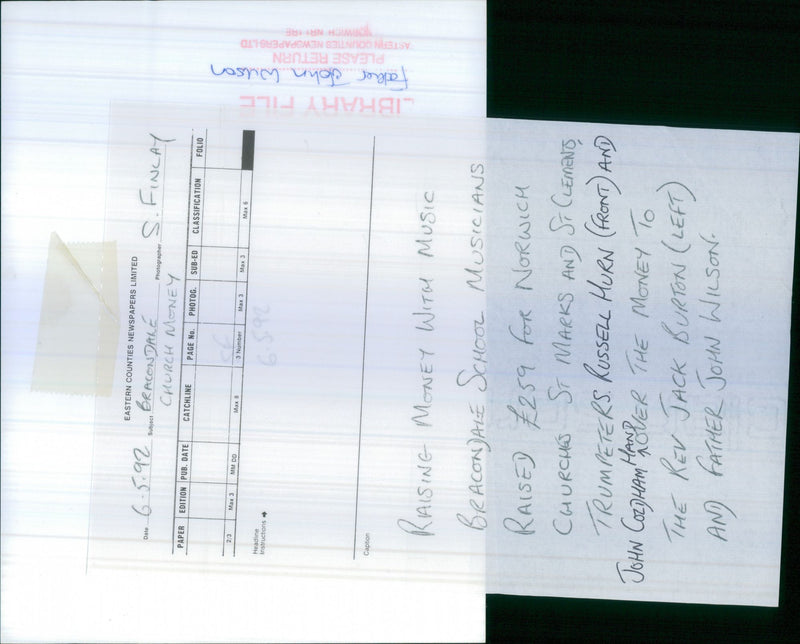 LIBRARY FILE
Father John Wilson
PLEASE RETURN
EASTERN COUNTIES NEWSPAPERS LTD
NORWICH NR1 1RE
EASTERN COUNTIES NEWSPAPERS LIMITED
Date 6.5.92 Subject BRACONDALE Photographer S. FINLAY
CHURCH MONEY
PAPER EDITION PUB. DATE CATCHLINE PAGE No. PHOTOG. SUB-ED CLASSIFICATION FOLIO
SF
2/3 Max 3 MM DD Max 8 3 Number Max 3 Max 3 Max 6
6.5.92
Headline
Instructions
Caption
RAISING MONEY WITH MUSIC
BRACONDALE SCHOOL MUSICIANS
RAISED £259 FOR NORWICH
CHURCHES ST MARKS AND ST CLEMENTS,
TRUMPETERS RUSSELL HURN (FRONT) AND
JOHN COLDHAM HAND OVER THE MONEY TO
THE REV JACK BURTON (LEFT)
AND FATHER JOHN WILSON.